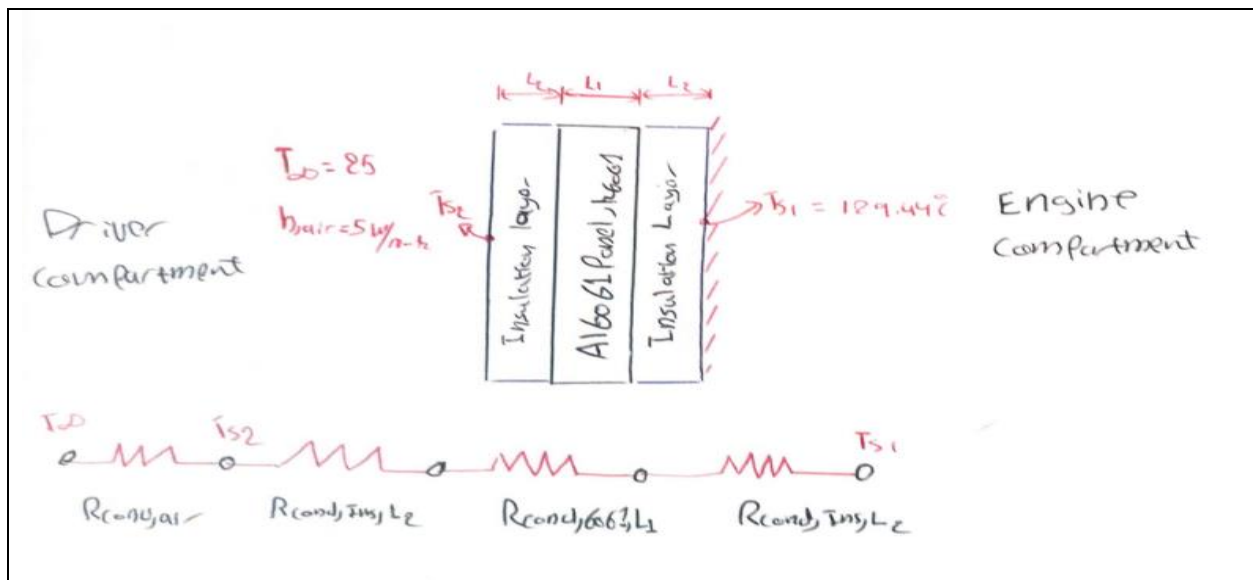 L2 L1 L2
T∞ = 25
h,air = 5 W/m-k
Ts2
Driver
compartment
Insulation layer
Al6061 Panel, k6061
Insulation Layer
Ts1 = 129.44°C
Engine
compartment
T∞ Ts2 Ts1
Rcond,Ins,L2 Rcond,6061,L1 Rcond,Ins,L2